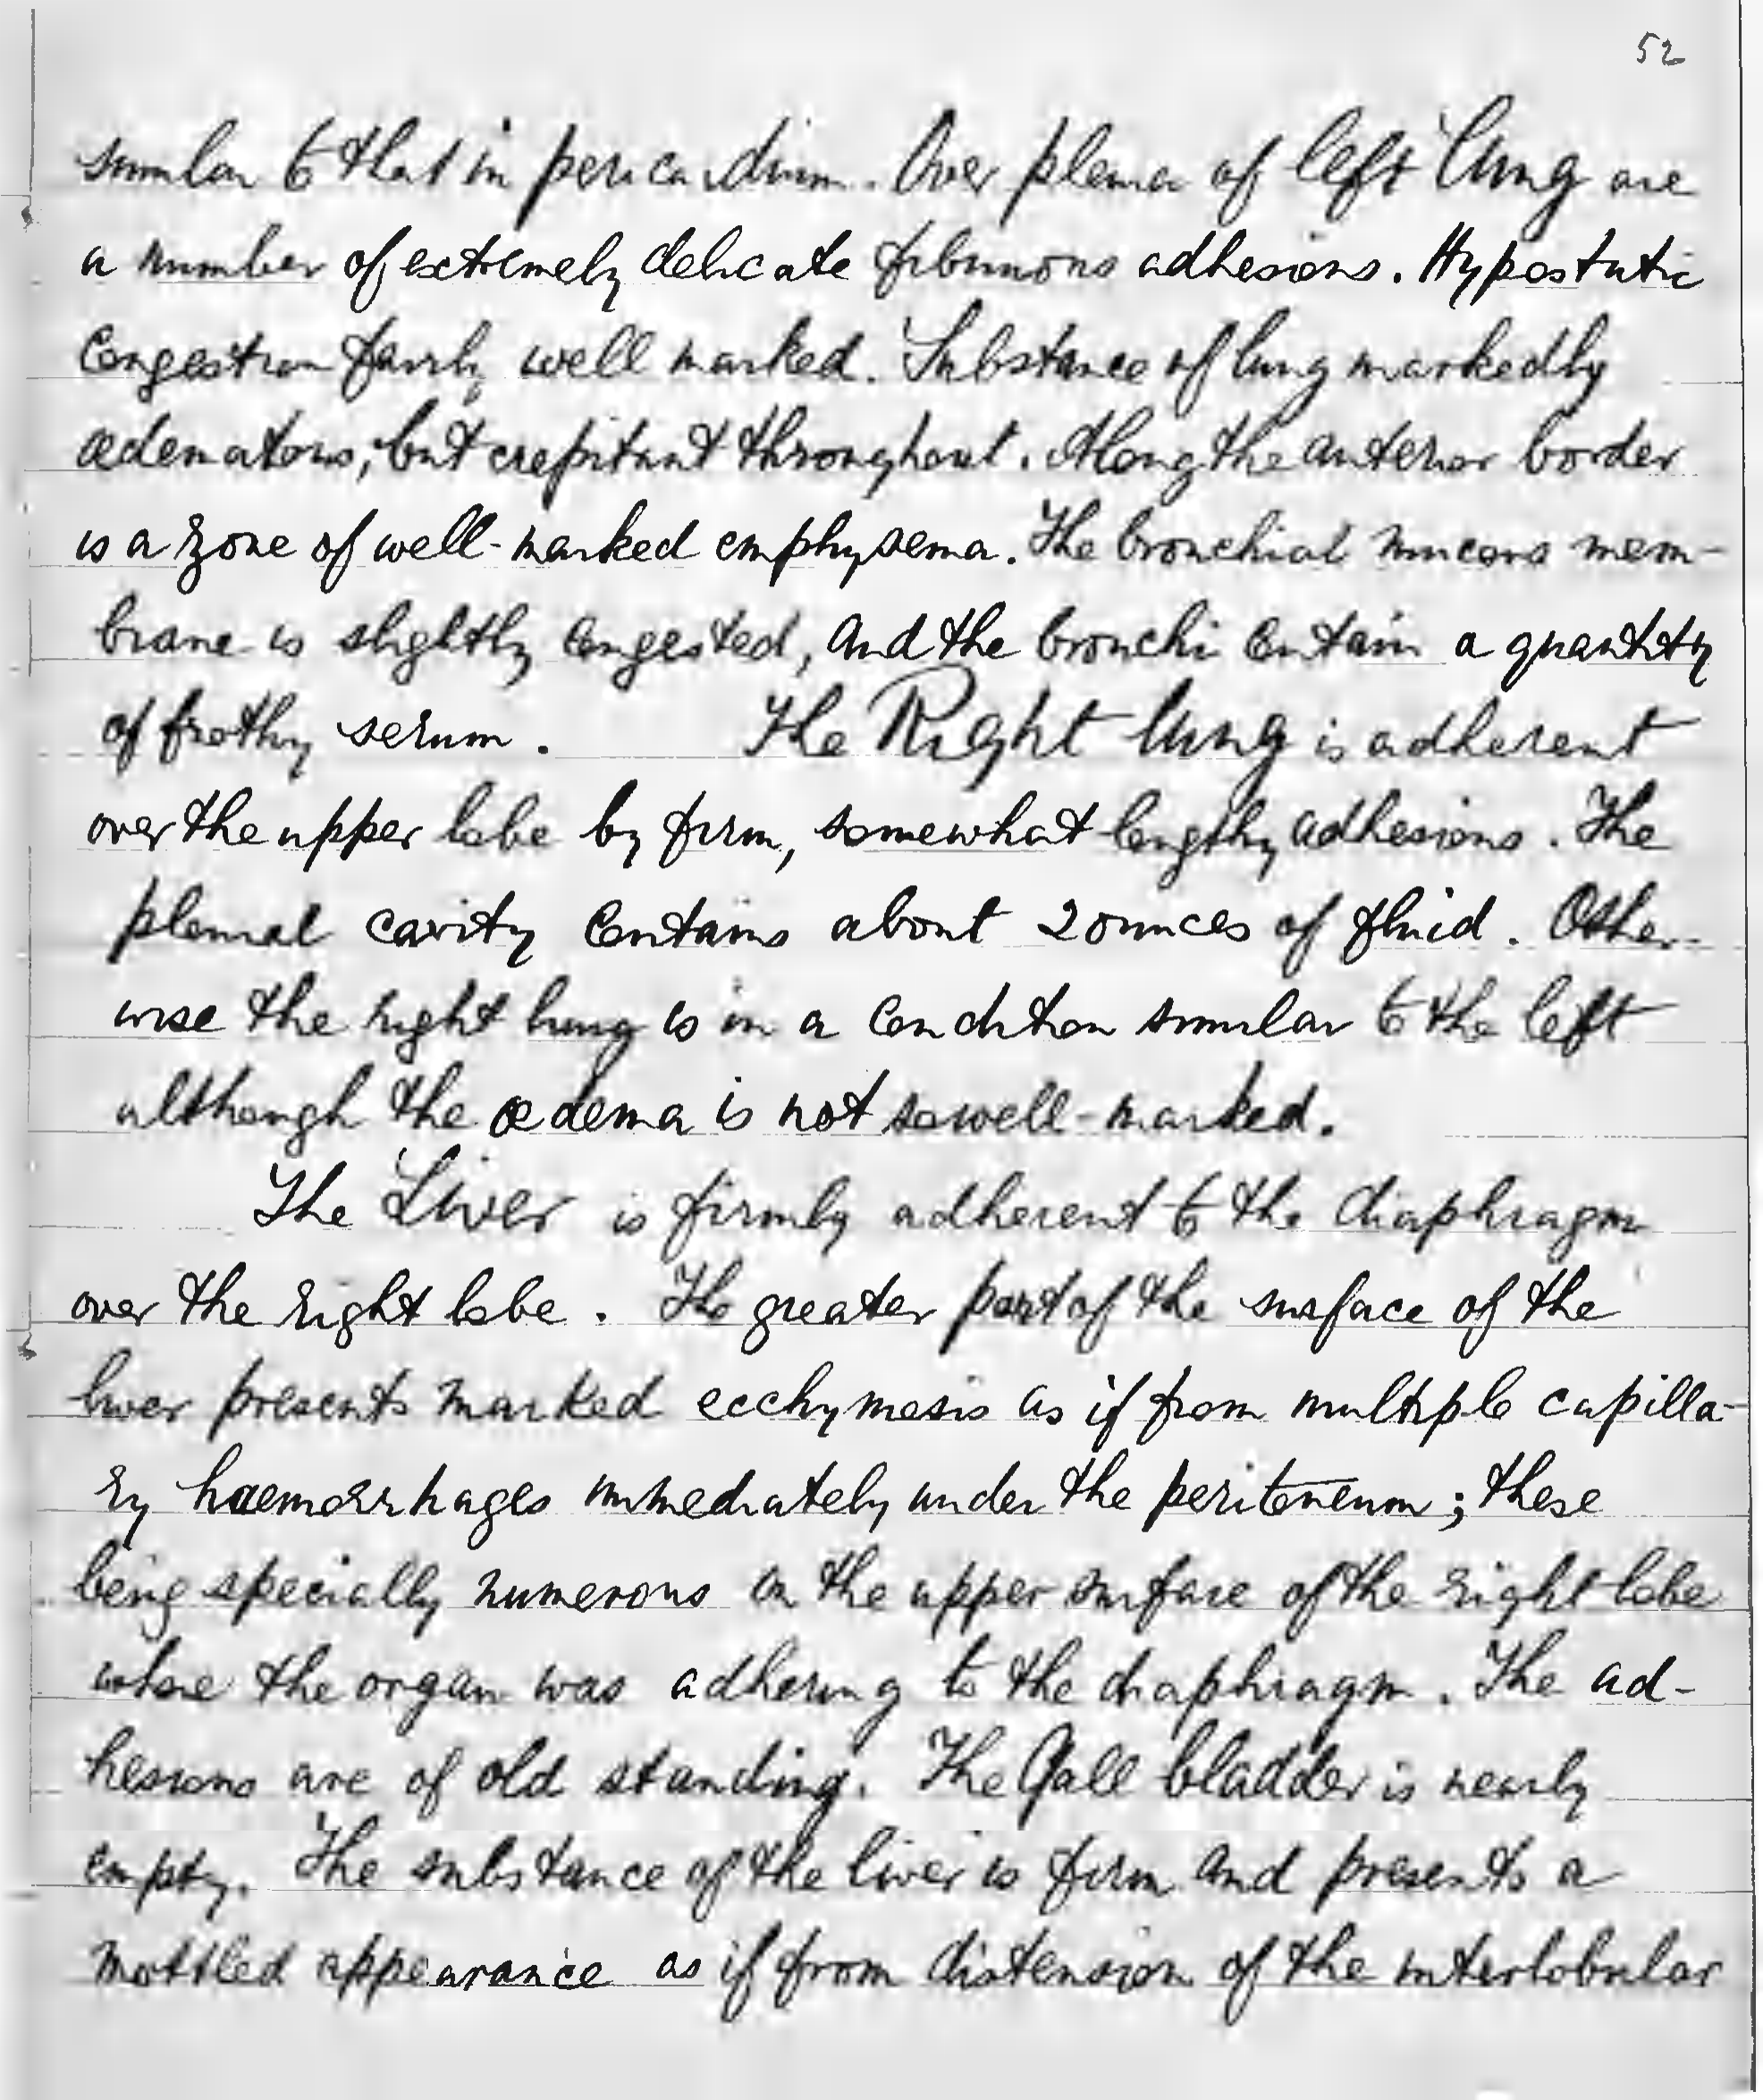 52
similar to that in pericardium. Over pleura of left lung are
a number of extremely delicate fibrinous adhesions. Hypostatic
Congestion fairly well marked. Substance of lung markedly
œdematous; but crepitant throughout. Along the anterior border
is a zone of well-marked emphysema. The bronchial mucous mem-
brane is slightly Congested, and the bronchi Contain a quantity
of frothy serum. The Right lung is adherent
over the upper lobe by firm, somewhat lengthy adhesions. The
pleural cavity Contains about 2 ounces of fluid. Other-
wise the right lung is in a Condition similar to the left
although the œdema is not so well-marked.
The Liver is firmly adherent to the diaphragm
over the right lobe. The greater part of the surface of the
liver presents marked ecchymosis as if from multiple capilla-
ry haemorrhages immediately under the peritoneum; these
being specially numerous on the upper surface of the right lobe
where the organ was adhering to the diaphragm. The ad-
hesions are of old standing. The Gall bladder is nearly
empty. The substance of the liver is firm and presents a
mottled appearance as if from distension of the interlobular